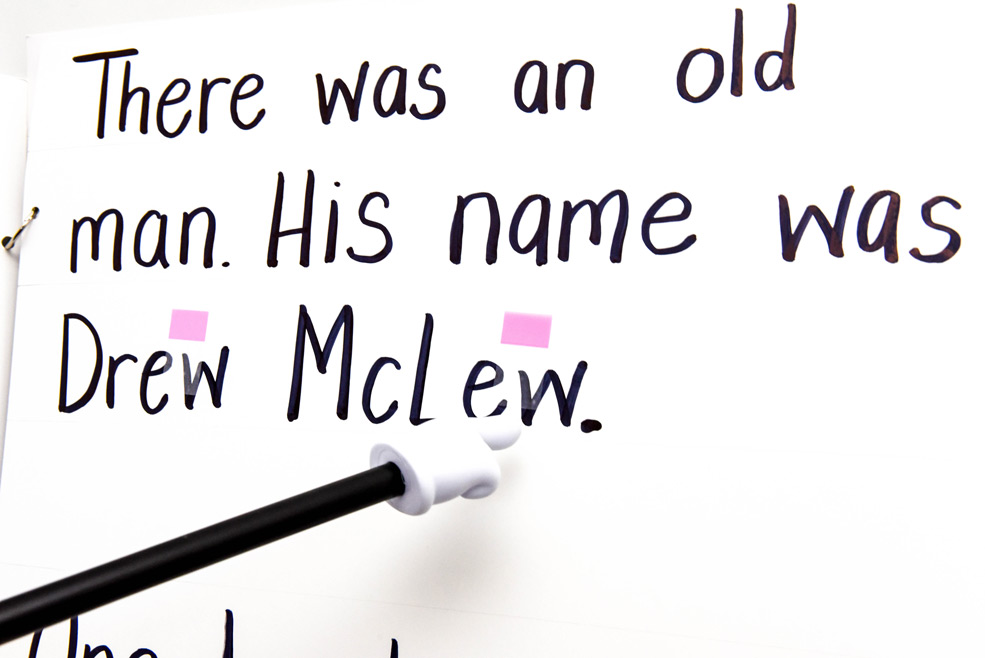 There was an old
man. His name was
Drew McLew.